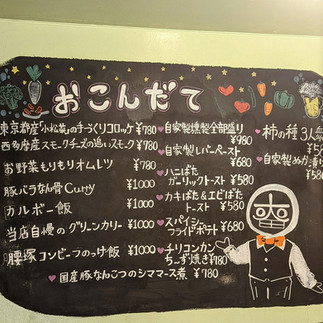 おこんだて
東京都産「小松菜」の手づくりコロッケ ¥780
西多摩産スモークチーズの追いスモーク ¥780
お野菜もりもりオムレツ ¥780
豚バラなん骨Curry ¥1000
カルボー飯 ¥1000
当店自慢のグリーンカリー ¥1000
腰塚コンビーフのっけ飯 ¥1000
国産豚なんこつのシママース煮 ¥780
自家製燻製全部盛り ¥980
自家製レバーペースト ¥680
ハニばた
ガーリックトースト ¥580
カキばた&エビばた
トースト ¥580
スパイシー
フライドポテト ¥680
チリコンカン
ちーず焼き ¥780
柿の種3人
自家製ぬか漬け
¥580